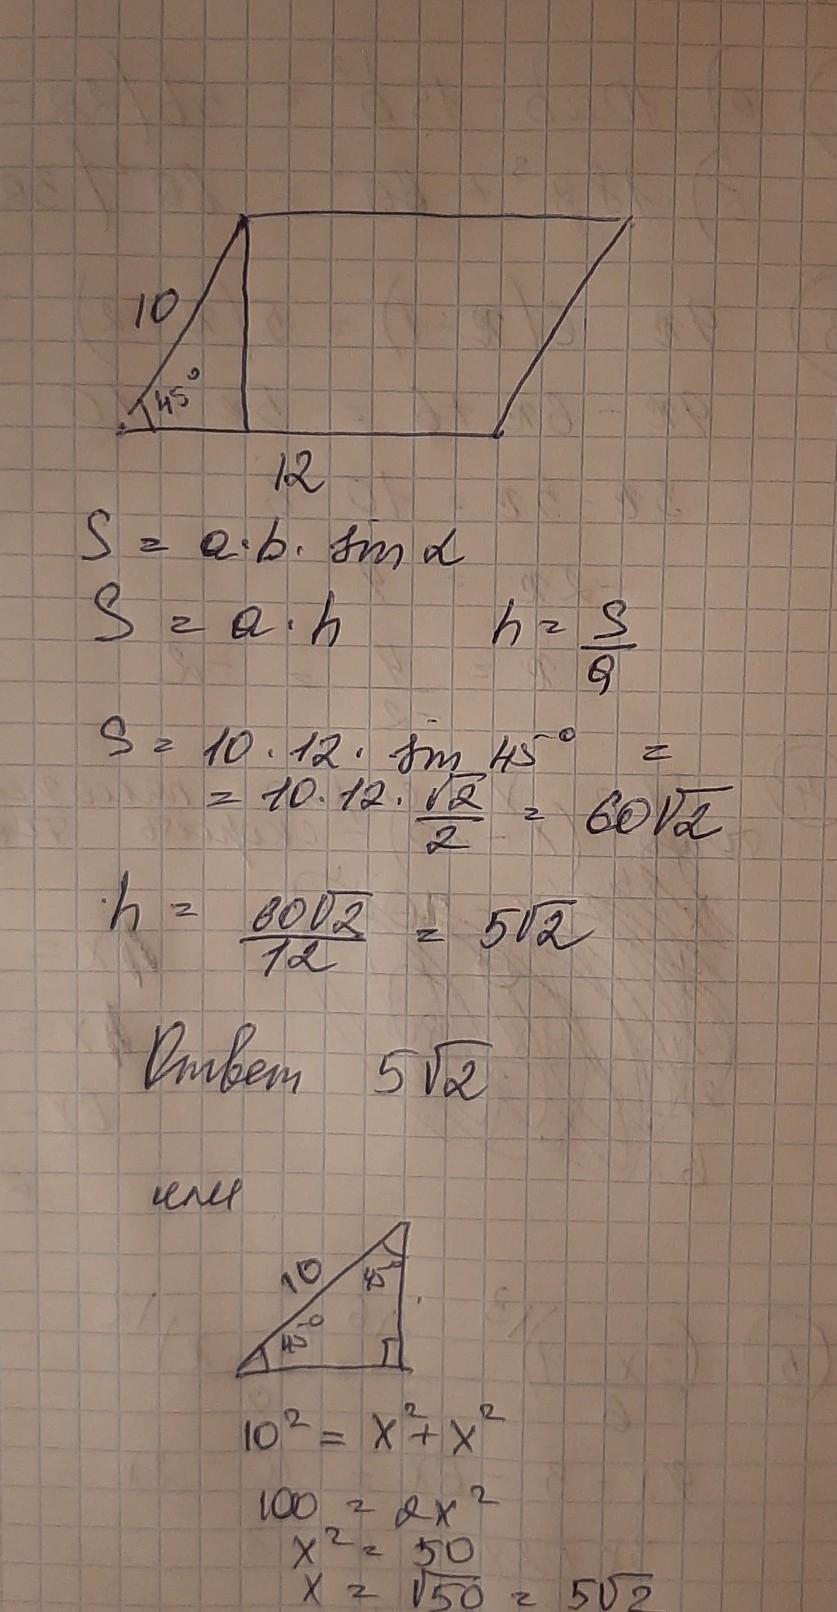 10
45°
12
S = a·b· sin α
S = a·h h = S/a
S = 10·12· sin 45° =
= 10·12· √2/2 = 60√2
h = 60√2/12 = 5√2
Ответ 5√2
или
10
45°
45°
10² = x² + x²
100 = 2x²
x² = 50
x = √50 = 5√2